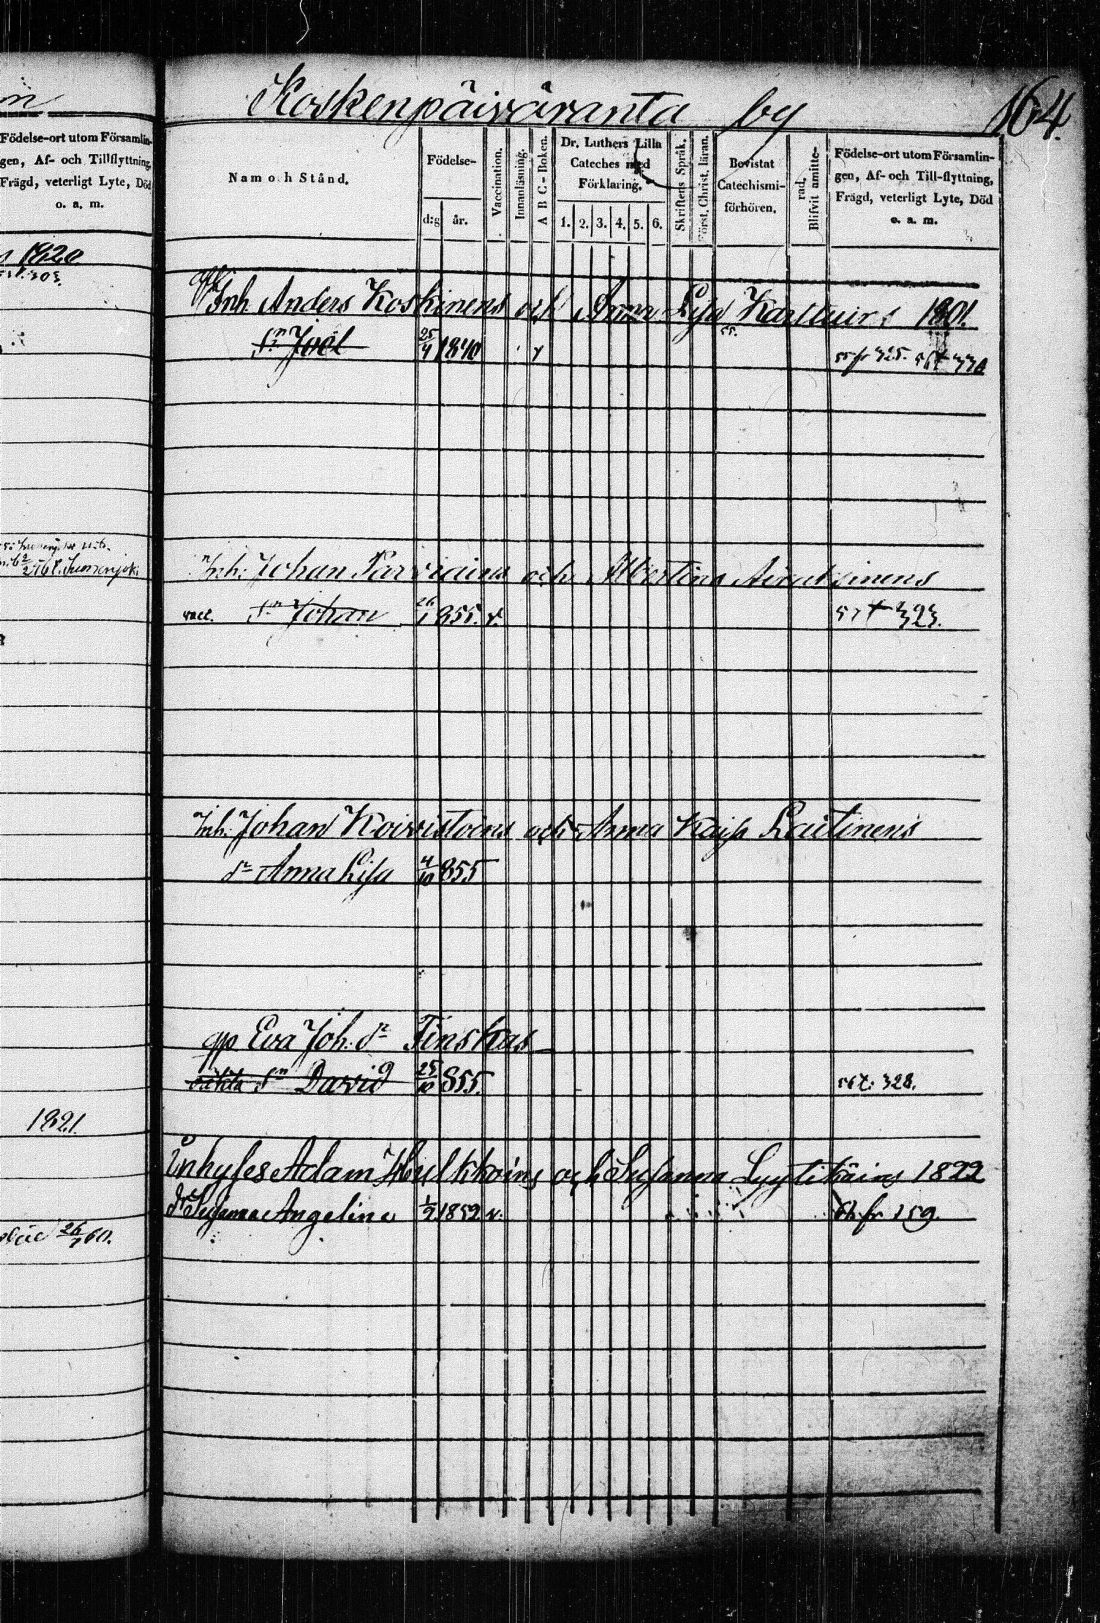 Koskenpäiväranta by 164.
Födelse-ort utom Församlin-
gen, Af- och Tillflyttning,
Frägd, veterligt Lyte, Död
o. a. m.
Namn och Stånd.
Födelse-
d:g år.
Vaccination.
Innanläsning.
A B C-Boken.
Dr. Luthers Lilla
Cateches med
Förklaring.
1. 2. 3. 4. 5. 6.
Skriftens Språk.
Först. Christ. läran.
Bevistat
Catechismi-
förhören.
Blifvit amitte-
rad.
Födelse-ort utom Församlin-
gen, Af- och Till-flyttning,
Frägd, veterligt Lyte, Död
o. a. m.
1820
Inh. Anders Koskinens och Anna Lisa Karttuins 1801.
Sn Joel 25/4 1840 55 fr 325. 56 t 330
Inh: Johan Parviains och Albertina
vacc. Sn Johan 26/1 855. v. 57 † 323.
Inh: Johan Koivistoins och Anna Kajsa Lautinens
dr Anna Lisa 4/10 855
qp Eva Joh: dr Tinskas
oäkta Sn David 25/10 855. 56 t. 328.
1821.
Inhyses Adam Hulkkoins och Susanna Lyytikäins 1822
dr Susanna Angelina 1/2 1852 v. fr 159.
26/7 60.